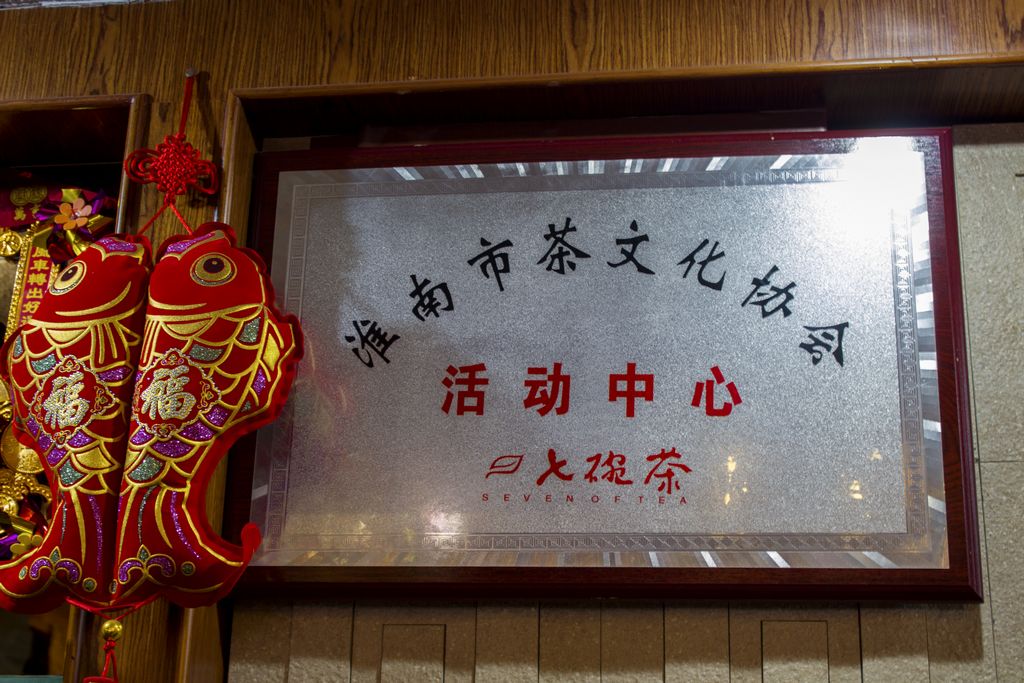 淮南市茶文化协会
活动中心
七碗茶
SEVEN OF TEA
福
福
風車轉出好